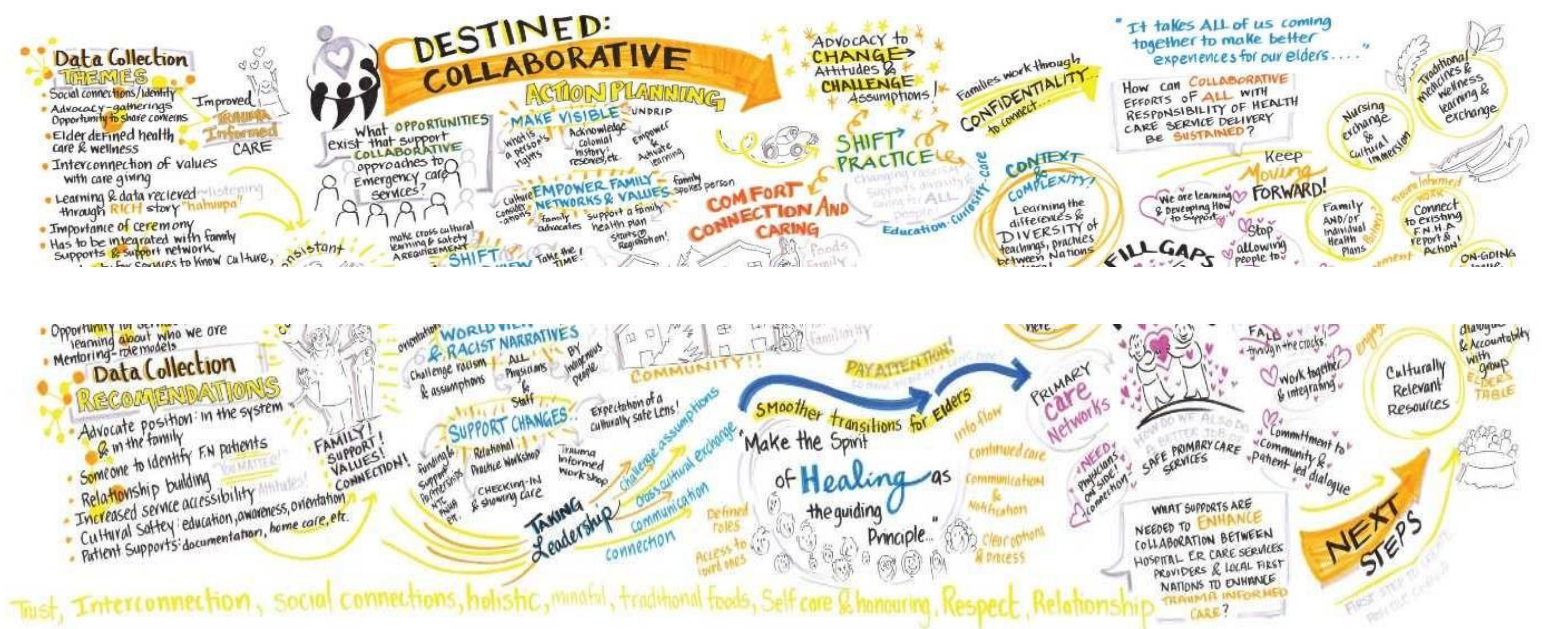 Data Collection
THEMES
• Social connections/Identity
• Advocacy-gatherings
Opportunity to share concerns
• Elder defined health
care & wellness
• Interconnection of values
with care giving
• Learning & data recieved
through RICH story
listening
"hahuupa"
• Importance of ceremony
• Has to be integrated with family
supports & support network
for services to know culture,
Improved
TRAUMA
Informed
CARE
DESTINED:
COLLABORATIVE
ACTION PLANNING
What OPPORTUNITIES
exist that support
COLLABORATIVE
approaches to
Emergency care
services?
MAKE VISIBLE
UNDRIP
what is
a person's
rights
Acknowledge
colonial
history:
reserves, etc.
Empower
&
Activate
learning
EMPOWER FAMILY
NETWORKS & VALUES
Culture
Consider
-ations
family
advocates
support a family
health plan
starts @
Registration!
family
spokes person
make cross cultural
learning & safety
A REQUIREMENT
SHIFT
Take the
TIME!
COMFORT
CONNECTION AND
CARING
foods
family
ADVOCACY to
CHANGE
Attitudes &
CHALLENGE
Assumptions!
SHIFT
PRACTICE
Education: curiosity-care
Families work through
CONFIDENTIALITY...
to connect...
CONTEXT
&
COMPLEXITY!
Learning the
differences &
DIVERSITY of
teachings, practices
between Nations
"It takes ALL of us coming
together to make better
experiences for our elders...."
How can COLLABORATIVE
EFFORTS OF ALL WITH
RESPONSIBILITY OF HEALTH
CARE SERVICE DELIVERY
BE SUSTAINED?
Keep
Moving
FORWARD!
We are learning
& Developing How
to Support...
FILL GAPS
Stop
allowing
people to
Family
AND/or
Individual
Health
Plans
Nursing
exchange
&
Cultural
Immersion
Traditional
medicines &
wellness
learning &
exchange
Trauma Informed
Connect
to existing
F.N.H.A
report &
Action!
ON-GOING
learning about who we are
• Mentoring-role models
Data Collection
RECOMENDATIONS
• Advocate position: in the system
& in the family
• Someone to identify F.N patients
• Relationship building
"YOU MATTER!"
• Increased service accessibility
Attitudes!
• Cultural Saftey: education, awareness, orientation
• Patient Supports: documentation, home care, etc.
FAMILY!
SUPPORT!
VALUES!
CONNECTION!
orientation
WORLD VIEW
& RACIST NARRATIVES
Challenge racism
& assumptions
ALL
Physicians
&
Staff
BY
Indigenous
people
COMMUNITY!!
SUPPORT CHANGES
Expectation of a
culturally safe Lens!
funding
support
partnerships
Relational
Practice Workshop
CHECKING-IN
& showing care
Trauma
Informed
Workshop
TAKING
Leadership!
challenge assumptions
cross cultural exchange
communication
connection
PAY ATTENTION!
Smoother transitions for Elders
"Make the Spirit
of Healing as
the guiding
Principle..."
Defined
roles
Access to
loved ones
info flow
continued care
communication
&
Notification
Clear options
& process
PRIMARY
care
Networks
NEED
physicians
"on-side!"
connection!
HOW DO WE ALSO DO
BETTER FOR
SAFE PRIMARY CARE
SERVICES
FALL
through the cracks!
Work together
& integrating
Committment to
community &
patient led dialogue
WHAT SUPPORTS ARE
NEEDED TO ENHANCE
COLLABORATION BETWEEN
HOSPITAL E.R CARE SERVICES
PROVIDERS & LOCAL FIRST
NATIONS TO ENHANCE
TRAUMA INFORMED
CARE?
Culturally
Relevant
Resources
dialogue
& Accountability
with
group
ELDERS
TABLE
NEXT
STEPS
Trust, Interconnection, social connections, holistic, mindful, traditional foods, Self care & honouring, Respect, Relationship